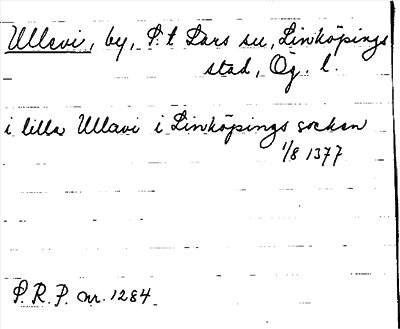 Ullevi, by, S:t Lars sn, Linköpings
stad, Ög. l.
i lilla Ullavi i Linköpings socken
1/8 1377
S.R.P. nr. 1284